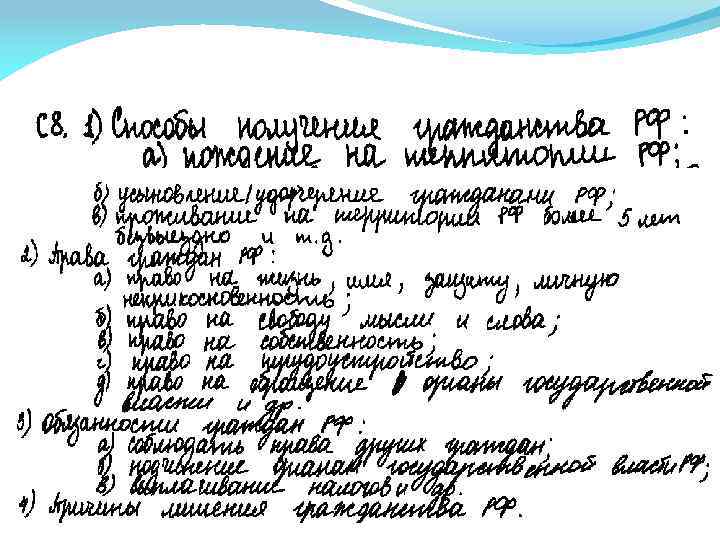 С8. 1) Способы получения гражданства РФ:
а) рождение на территории РФ;
б) усыновление/удочерение гражданами РФ;
в) проживание на территории РФ более 5 лет
безвыездно и т.д.
2) Права граждан РФ:
а) право на жизнь, имя, защиту, личную
неприкосновенность;
б) право на свободу мысли и слова;
в) право на собственность;
г) право на трудоустройство;
д) право на обращение в органы государственной
власти и др.
3) Обязанности граждан РФ:
а) соблюдать права других граждан;
б) подчинение органам государственной власти РФ;
в) выплачивание налогов и др.
4) Причины лишения гражданства РФ.